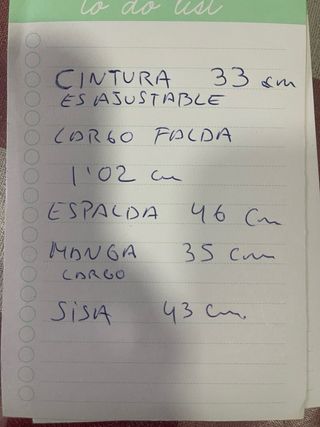 to do list
CINTURA 33 cm
ES AJUSTABLE
LARGO FALDA
1'02 cm
ESPALDA 46 cm
MANGA 35 cm
LARGO
SISA 43 cm.